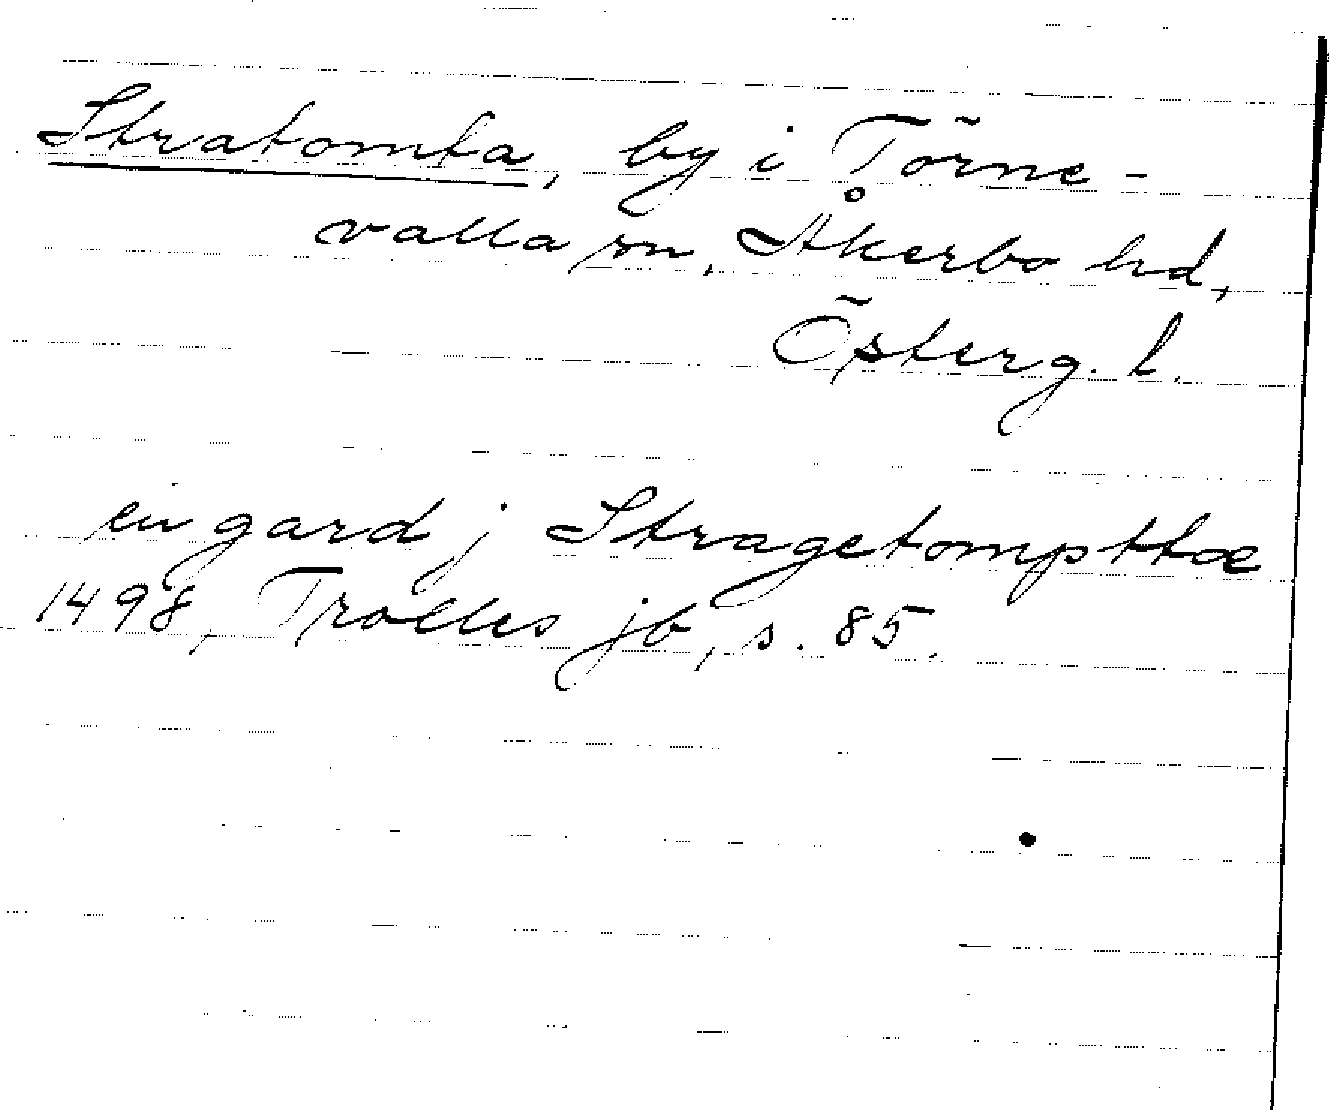 Stratomta, by i Törne-
valla sn, Åkerbo hd,
Österg. l.
en gard j Stragetompttæ
1498, Trolles jb, s. 85.